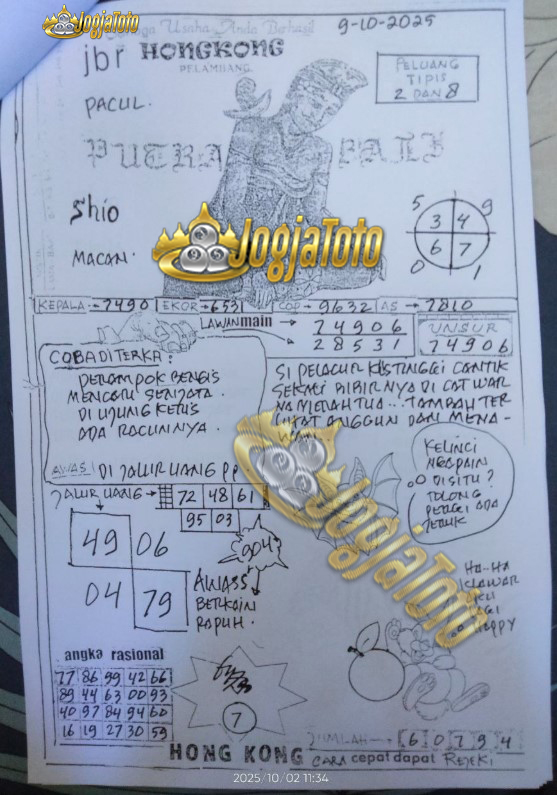 JogjaToto
Semoga Usaha Anda Berhasil
9-10-2025
jbr HONGKONG
PELAMBANG
PELUANG
TIPIS
2 DAN 8
PACUL.
PUTRA BALI
Shio
MACAN.
5 9
3 4
6 7
0 1
JogjaToto
KEPALA → 7490 EKOR → 6531 COP → 9632 AS → 7810
LAWAN main → 74906
28531
UNSUR
74906
COBA DITERKA:
PERAMPOK BENGIS
MENCARI SENJATA.
DI UJUNG KERIS
ADA RACUNNYA.
SI PELACUR KLS TINGGI CANTIK
SEKALI BIBIRNYA DI CAT WAR
NA MERAH TUA... TAMBAH TER
LIHAT ANGGUN DAN MENA-
AWAS! DI JALUR UANG PP
JALUR UANG → 72 48 61
95 03
KELINCI
NGAPAIN
DI SITU?
TOLONG
PETAGI ADA
JERUK
JogjaToto
49 06
04 79
904
AWASS
BERKAIN
RAPUH.
HA-HA
KLAWAR
AKU
LAGI
HAPPY
angka rasional
77 86 99 42 66
89 44 63 00 93
40 97 84 94 60
16 19 27 30 59
7
JUMLAH → 6 0 7 9 4
HONG KONG CARA cepat dapat REJEKI
2025/10/02 11:34